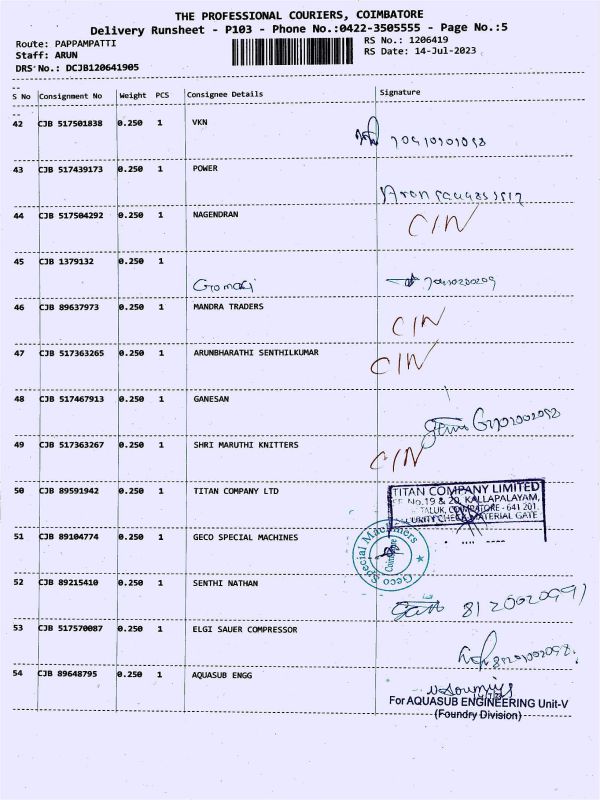 THE PROFESSIONAL COURIERS, COIMBATORE
Delivery Runsheet - P103 - Phone No.:0422-3505555 - Page No.:5
Route: PAPPAMPATTI RS No.: 1206419
Staff: ARUN RS Date: 14-Jul-2023
DRS No.: DCJB120641905
S No Consignment No Weight PCS Consignee Details Signature
42 CJB 517501838 0.250 1 VKN
43 CJB 517439173 0.250 1 POWER
44 CJB 517504292 0.250 1 NAGENDRAN CIN
45 CJB 1379132 0.250 1
46 CJB 89637973 0.250 1 MANDRA TRADERS CIN
47 CJB 517363265 0.250 1 ARUNBHARATHI SENTHILKUMAR CIN
48 CJB 517467913 0.250 1 GANESAN
49 CJB 517363267 0.250 1 SHRI MARUTHI KNITTERS CIN
50 CJB 89591942 0.250 1 TITAN COMPANY LTD
TITAN COMPANY LIMITED
No.19 & 20, KALLAPALAYAM,
TALUK, COIMBATORE - 641 201.
SECURITY CHECK MATERIAL GATE
51 CJB 89104774 0.250 1 GECO SPECIAL MACHINES
Geco Special Machiners
Coimbatore
52 CJB 89215410 0.250 1 SENTHI NATHAN
53 CJB 517570087 0.250 1 ELGI SAUER COMPRESSOR
54 CJB 89648795 0.250 1 AQUASUB ENGG
For AQUASUB ENGINEERING Unit-V
(Foundry Division)